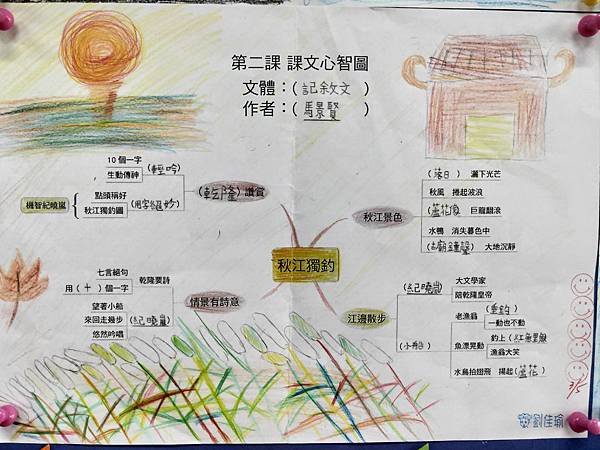 第二課 課文心智圖
文體：( 記敘文 )
作者：( 馬景賢 )
10個一字
生動傳神
(輕吟)
點頭稱好
秋江獨釣圖
(用字絕妙)
(乾隆) 讚賞
機智紀曉嵐
秋江景色
(落日) 灑下光芒
秋風 捲起波浪
(蘆花像) 巨龍翻浪
水鴨 消失暮色中
(古廟鐘聲) 大地沉靜
秋江獨釣
七言絕句
用(十)個一字
乾隆要詩
望著小船
來回走幾步
悠然吟唱
(紀曉嵐)
情景有詩意
江邊散步
(紀曉嵐)
大文學家
陪乾隆皇帝
(小船)
老漁翁
(垂釣)
一動也不動
魚漂晃動
釣上
漁翁大笑
水鳥拍翅飛 揚起(蘆花)
3/5
劉佳瑜